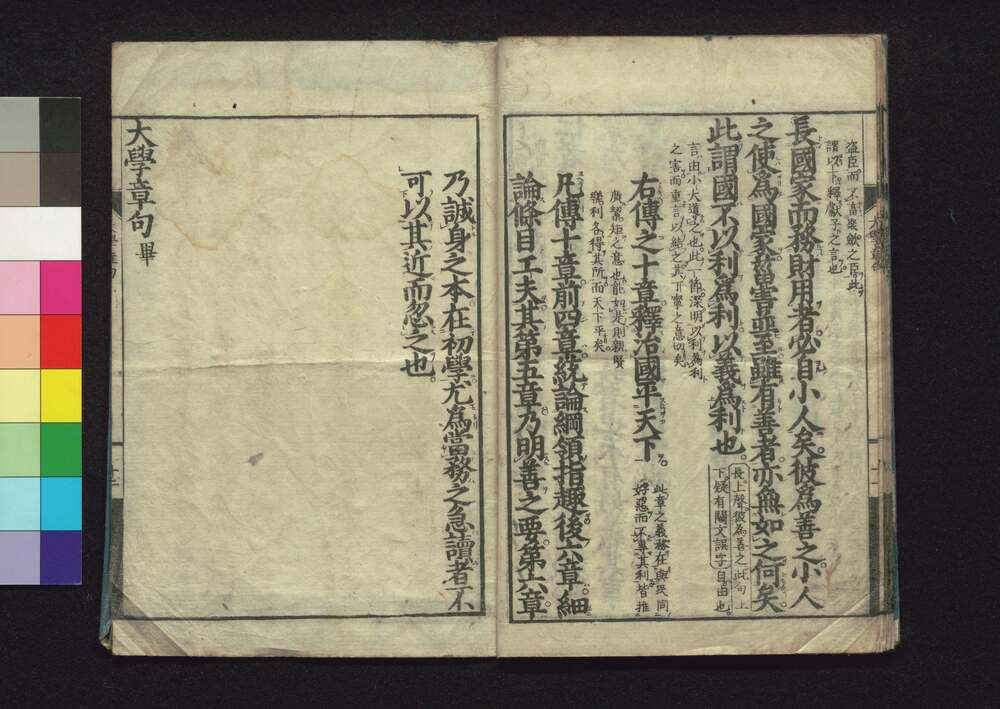 盗臣而不畜聚斂之臣此
謂以下釋獻子之言也
長國家而務財用者必自小人矣彼爲善之小人
之使爲國家菑害並至雖有善者亦無如之何矣
此謂國不以利爲利以義爲利也
長上聲彼爲善之此句上
下疑有闕文誤字自由也
言由小人導之也此一節深明以利爲利
之害而重言以結之其丁寧之意切矣
右傳之十章釋治國平天下
此章之義務在與民同
好惡而不專其利皆推
廣絜矩之意也能如是則親賢
樂利各得其所而天下平矣
凡傳十章前四章統論綱領指趣後六章細
論條目工夫其第五章乃明善之要第六章
乃誠身之本在初學尤爲當務之急讀者不
可以其近而忽之也
大學章句畢